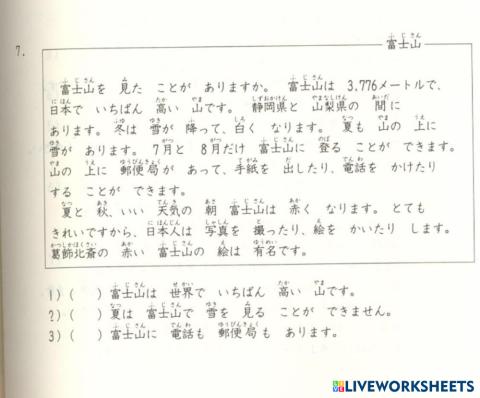 7.
富士山
富士山を 見た ことが ありますか。 富士山は 3,776メートルで、
日本で いちばん 高い 山です。 静岡県と 山梨県の 間に
あります。 冬は 雪が 降って、白く なります。 夏も 山の 上に
雪が あります。 7月と 8月だけ 富士山に 登る ことが できます。
山の 上に 郵便局が あって、手紙を 出したり、電話を かけたり
する ことが できます。
夏と 秋、いい 天気の 朝 富士山は 赤く なります。 とても
きれいですから、日本人は 写真を 撮ったり、絵を かいたり します。
葛飾北斎の 赤い 富士山の 絵は 有名です。
1) (   ) 富士山は 世界で いちばん 高い 山です。
2) (   ) 夏は 富士山で 雪を 見る ことが できません。
3) (   ) 富士山に 電話も 郵便局も あります。
LIVEWORKSHEETS